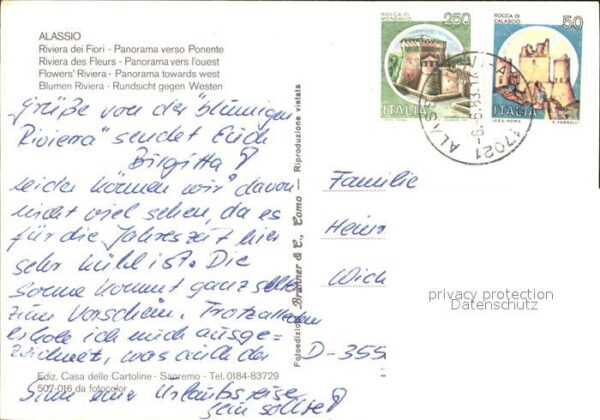 ALASSIO
Riviera dei Fiori - Panorama verso Ponente
Riviera des Fleurs - Panorama vers l'ouest
Flowers' Riviera - Panorama towards west
Blumen Riviera - Rundsicht gegen Westen
Grüße von der "blumigen
Riviera" sendet Euch
Birgitta
Leider können wir davon
nicht viel sehen, da es
für die Jahreszeit hier
sehr kühl ist. Die
Sonne kommt ganz selten
zum Vorschein. Trotzdem
erhole ich mich ausge=
zeichnet, was auch der
Sinn einer Urlaubsreise
sein sollte!
Ediz. Casa delle Cartoline - Sanremo - Tel. 0184-83729
507-016 da fotocolor
Fotoedizioni Brunner & C., Como - Riproduzione vietata
ROCCA DI
MONDAVIO
250
ITALIA
ROCCA DI
CALASCIO
50
ITALIA
17021 ALASSIO
Familie
Heinr
Wich
D-355
privacy protection
Datenschutz